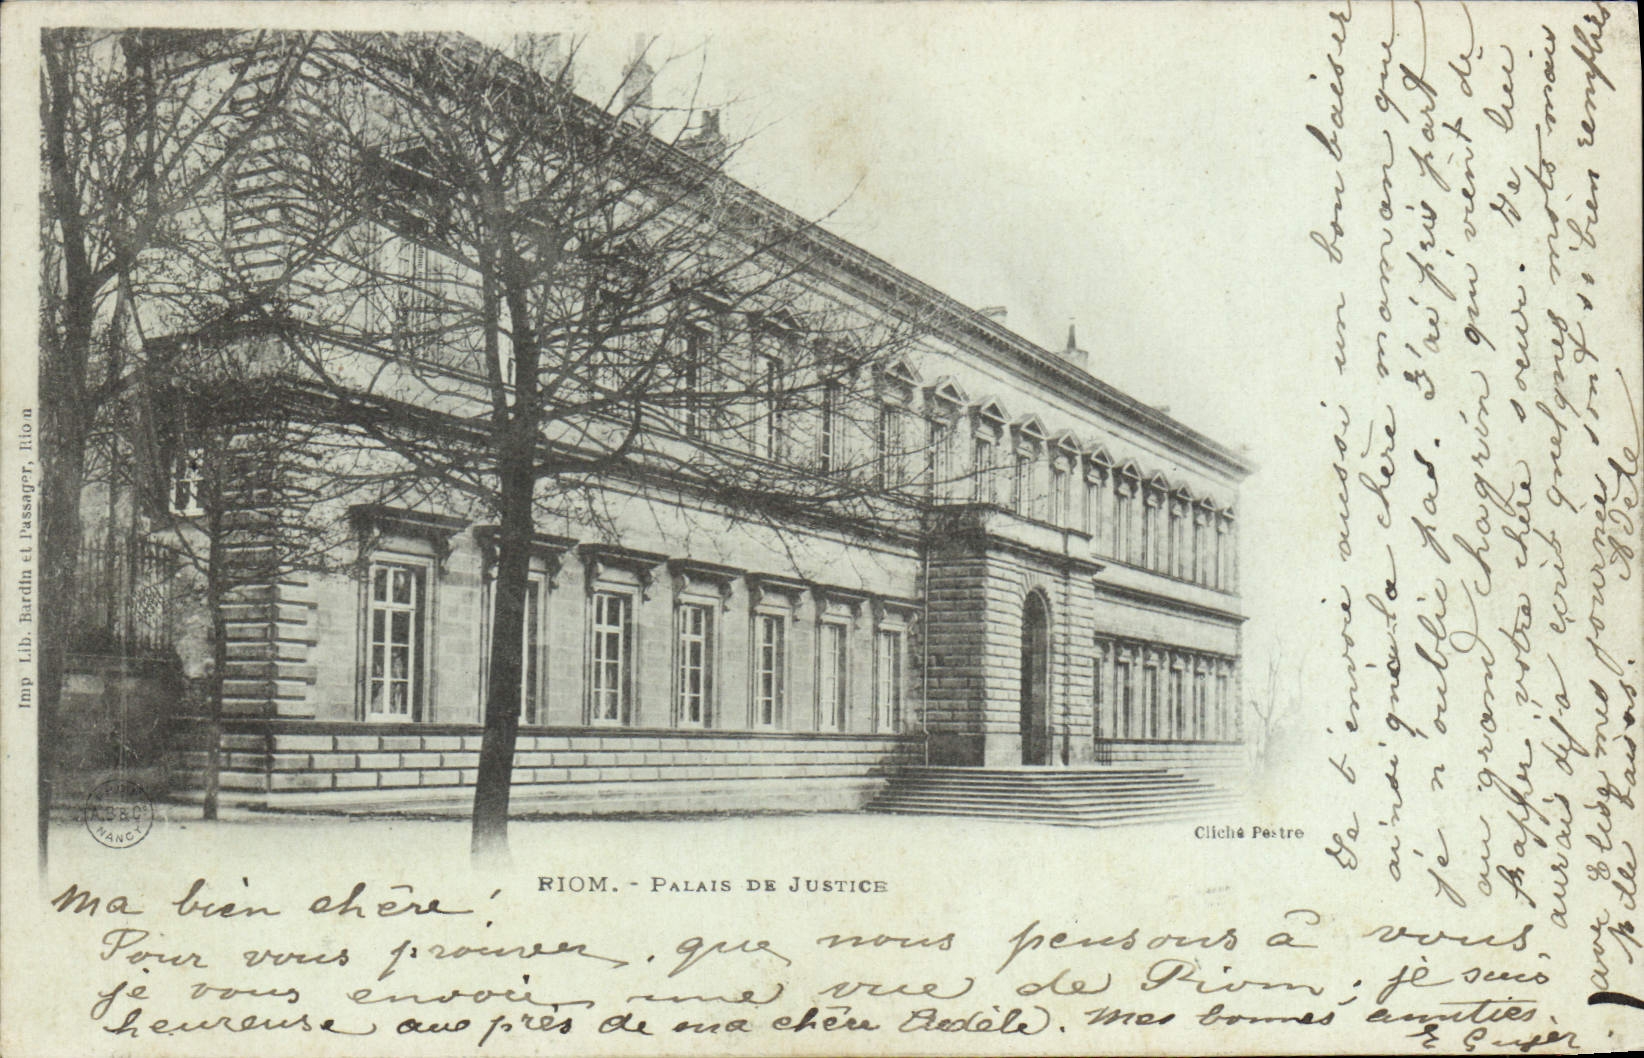 Imp Lib. Bardin et Passager, Riom
A.B & Cie
NANCY
Cliché Pestre
RIOM. - PALAIS DE JUSTICE
Ma bien chère !
Pour vous prouver, que nous pensons à vous
je vous envoie une vue de Riom ; je suis
heureuse auprès de ma chère Adèle. Mes bonnes amitiés.
Je t'envoie aussi un bon baiser
ainsi qu'a la chère maman que
je n'oublie pas. J'ai pris part
au grand chagrin qui vient de
frapper votre chère soeur. Je lui
aurais déjà écrit quelques mots mais
avec Elise mes journées sont si bien remplies
Mille baisers. Adèle